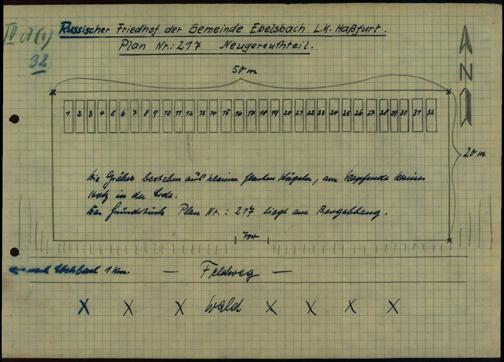 Russischer Friedhof der Gemeinde Ebelsbach L.K. Haßfurt.
Plan Nr.: 217 Neugereuthteil.
32
50 m
N
1 2 3 4 5 6 7 8 9 10 11 12 13 14 15 16 17 18 19 20 21 22 23 24 25 26 27 28 29 30 31 32
20 m
Die Gräber bestehen aus kleinen flachen Hügeln, am Kopfende kleines
Holz in der Erde.
Das Grundstück Plan Nr.: 217 liegt am Bergabhang.
Tor
← nach Ebelsbach 1 Km. — Feldweg —
X X X Wald X X X X